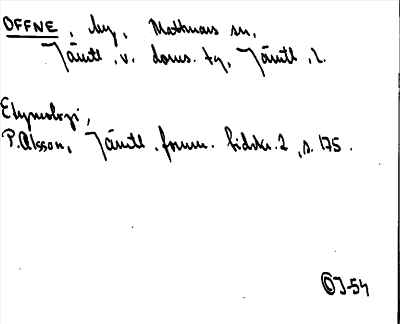 OFFNE, by, Mattmars sn,
Jämtl. v. doms. tg, Jämtl. l.
Etymologi,
P. Olsson, Jämtl. fornm. tidskr. 2, s. 175.
OJ-54